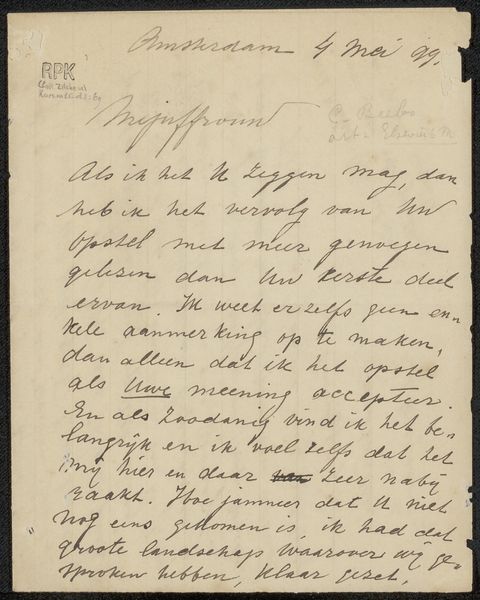 Amsterdam 4 Mei 99.
RPK
Mejuffrouw
Als ik het U zeggen mag, dan
heb ik het vervolg van Uw
opstel met meer genoegen
gelezen dan Uw eerste deel
ervan. Ik weet er zelfs geen en=
kele aanmerking op te maken,
dan alleen dat ik het opstel
als Uwe meening accepteer.
En als zoodanig vind ik het be=
langrijk en ik voel zelfs dat het
mij hier en daar zeer nabij
raakt. Hoe jammer dat U niet
nog eens gekomen is, ik had dat
groote landschap waarover wij ge=
sproken hebben, klaar gezet,